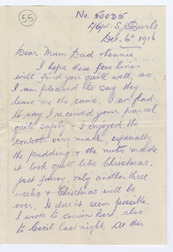 55
No. 500315
L/Cpl S. Searle
Dec. 6th 1916
Dear Mum Dad & Fennie,
I hope these few lines
will find you quite well, as
I am pleased to say they
leave me the same. I am glad
to say I received your parcel
quite safely & I enjoyed the
contents very much, especially
the pudding & the nuts made
it look quite like Christmas,
just fancy, only another three
weeks & Christmas will be
over. It doesn't seem possible.
I wrote to cousin also
to Cecil last night. At the